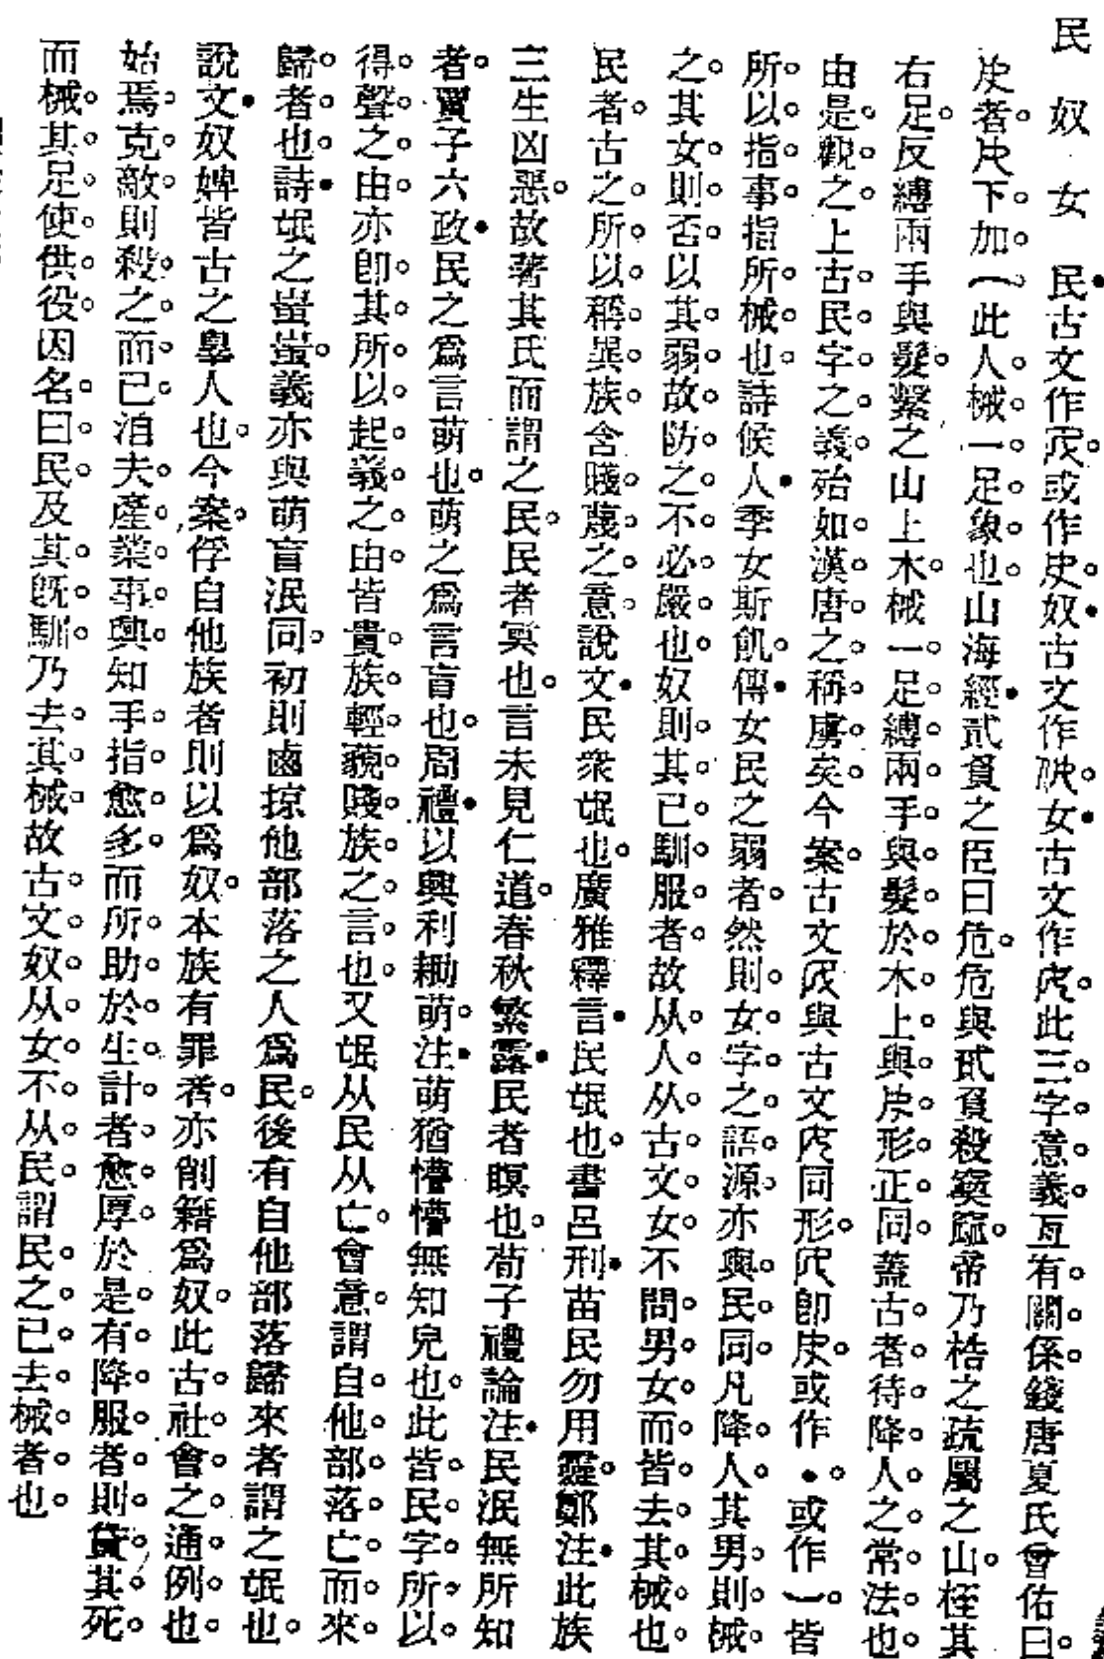 民　奴　女　民古文作或作奴古文作女古文作此三字意義亙有關係錢唐夏氏會佑曰
者下加此人械一足象也山海經貳負之臣曰危危與貳負殺窫窳帝乃梏之疏屬之山桎其
右足反縛兩手與髮繫之山上木械一足縛兩手與髮於木上與形正同蓋古者待降人之常法也
由是觀之上古民字之義殆如漢唐之稱虜矣今案古文與古文同形即或作或作皆
所以指事指所械也詩候人季女斯飢傳女民之弱者然則女字之語源亦與民同凡降人其男則械
之其女則否以其弱故防之不必嚴也奴則其已馴服者故从人从古文女不問男女而皆去其械也
民者古之所以稱異族含賤蔑之意說文民衆氓也廣雅釋言民氓也書呂刑苗民勿用靈鄭注此族
三生凶惡故著其氏而謂之民民者冥也言未見仁道春秋繁露民者瞑也荀子禮論注民泯無所知
者賈子六政民之爲言萌也萌之爲言盲也周禮以興利耡萌注萌猶懵懵無知皃也此皆民字所以
得聲之由亦卽其所以起義之由皆貴族輕藐賤族之言也又氓从民从亡會意謂自他部落亡而來
歸者也詩氓之蚩蚩義亦與萌盲泯同初則鹵掠他部落之人爲民後有自他部落歸來者謂之氓也
說文奴婢皆古之辠人也今案俘自他族者則以爲奴本族有罪者亦削籍爲奴此古社會之通例也
始焉克敵則殺之而已洎夫產業事興知手指愈多而所助於生計者愈厚於是有降服者則貸其死
而械其足使供役因名曰民及其旣馴乃去其械故古文奴从女不从民謂民之已去械者也